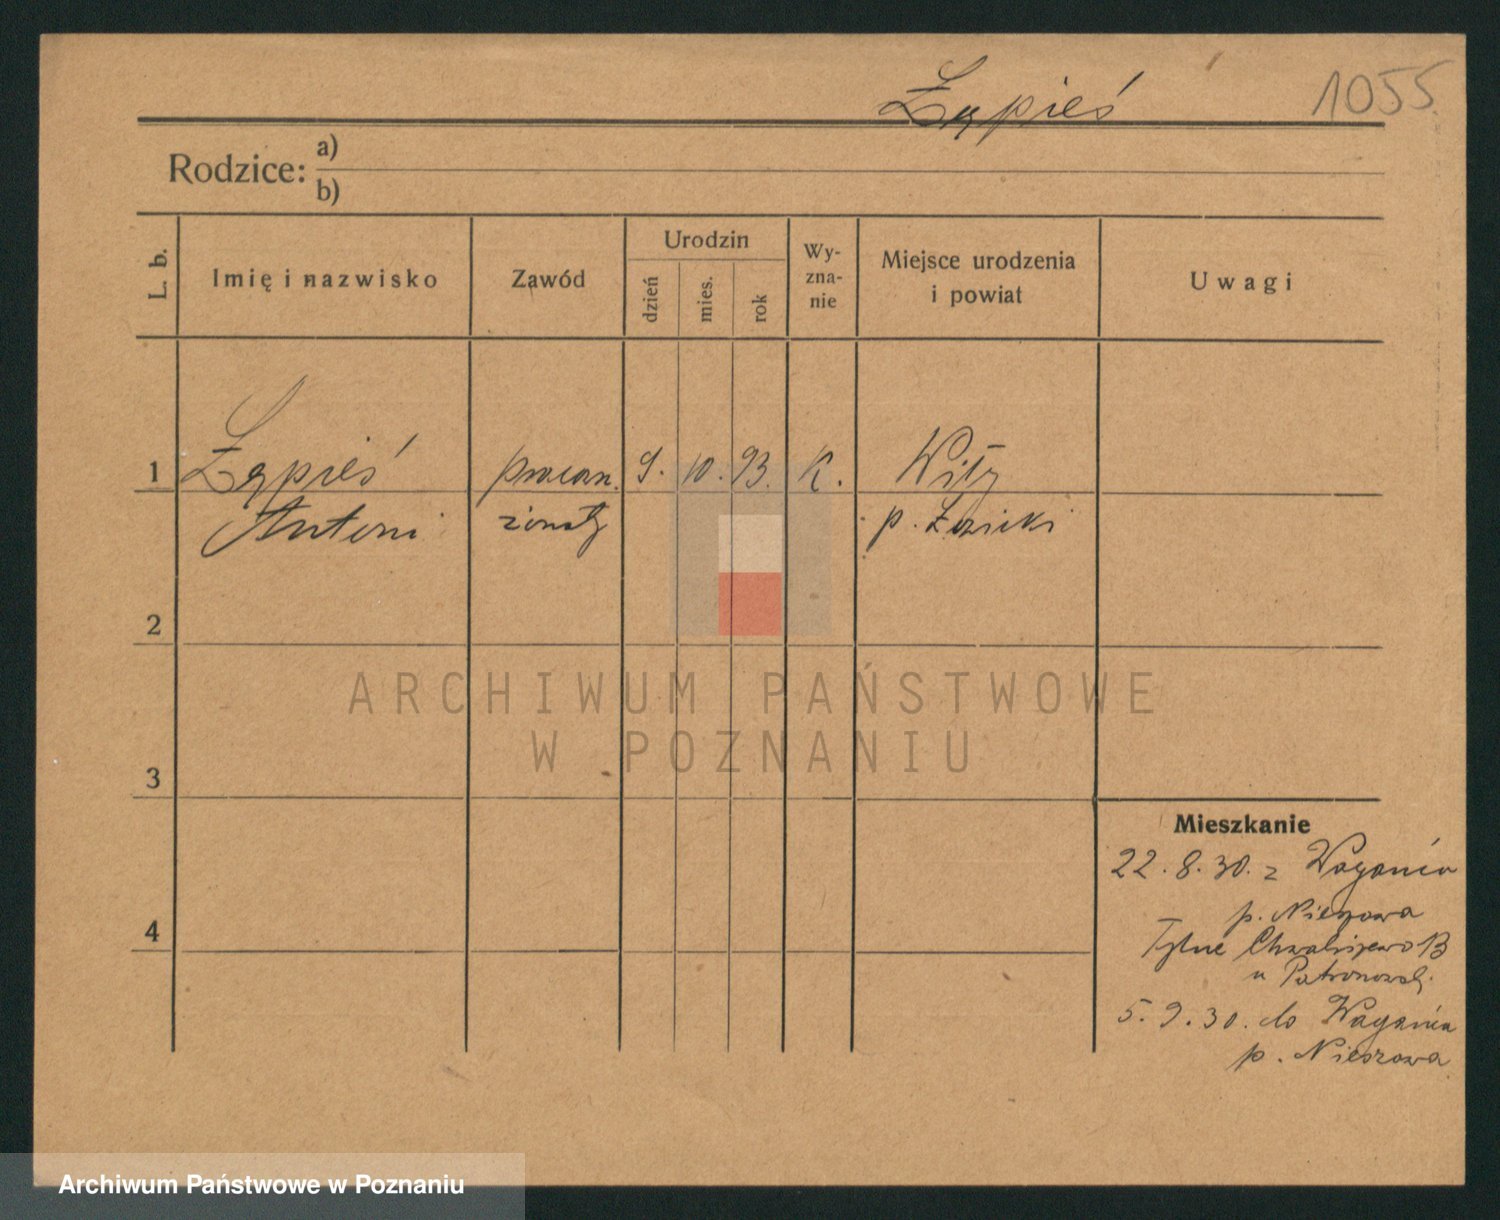 Łapieś
1055
Rodzice: a)
b)
L. b.
Imię i nazwisko
Zawód
Urodzin
dzień
mies.
rok
Wy-
zna-
nie
Miejsce urodzenia
i powiat
Uwagi
1
Łapieś
Antoni
żonaty
9. 10. 93. K.
p.
2
3
4
Mieszkanie
22. 8. 30. z
p. Nieszawa
Tylne Chwaliszewo 13
u
5. 9. 30. do
p. Nieszawa
ARCHIWUM PAŃSTWOWE
W POZNANIU
Archiwum Państwowe w Poznaniu